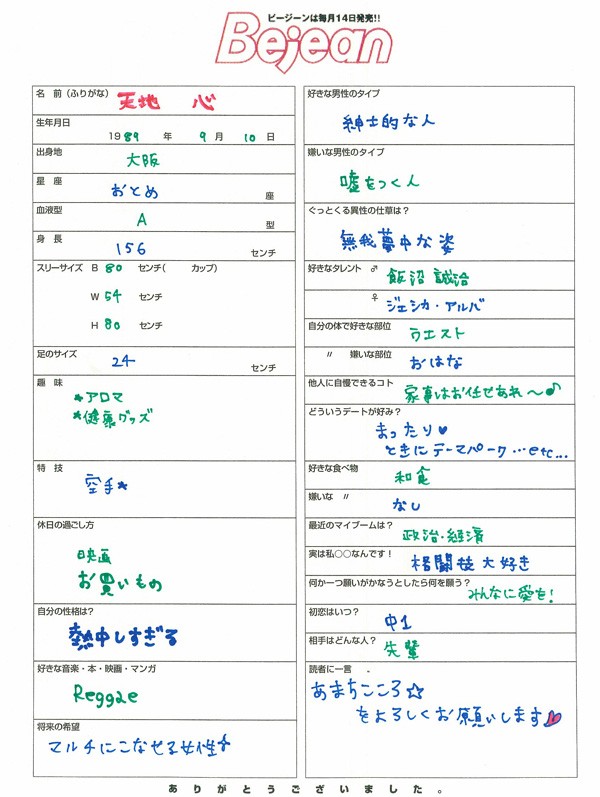 ビージーンは毎月14日発売!!
Bejean
名 前(ふりがな) 天地 心
生年月日
1989 年 9 月 10 日
出身地
大阪
星 座
おとめ 座
血液型
A 型
身 長
156 センチ
スリーサイズ B 80 センチ( カップ)
W 54 センチ
H 80 センチ
足のサイズ
24 センチ
趣 味
*アロマ
*健康グッズ
特 技
空手*
休日の過ごし方
映画
お買いもの
自分の性格は?
熱中しすぎる
好きな音楽・本・映画・マンガ
Reggae
将来の希望
マルチにこなせる女性
好きな男性のタイプ
紳士的な人
嫌いな男性のタイプ
嘘をつく人
ぐっとくる異性の仕草は?
無我夢中な姿
好きなタレント ♂ 飯沼 誠治
♀ ジェシカ・アルバ
自分の体で好きな部位
ウエスト
〃 嫌いな部位
おはな
他人に自慢できるコト
家事はお任せあれ〜♪
どういうデートが好み?
まったり♥
ときにテーマパーク…etc...
好きな食べ物
和食
嫌いな 〃
なし
最近のマイブームは?
政治・経済
実は私○○なんです!
格闘技大好き
何か一つ願いがかなうとしたら何を願う?
みんなに愛を!
初恋はいつ?
中1
相手はどんな人?
先輩
読者に一言
あまちこころ☆
をよろしくお願いします
ありがとうございました。